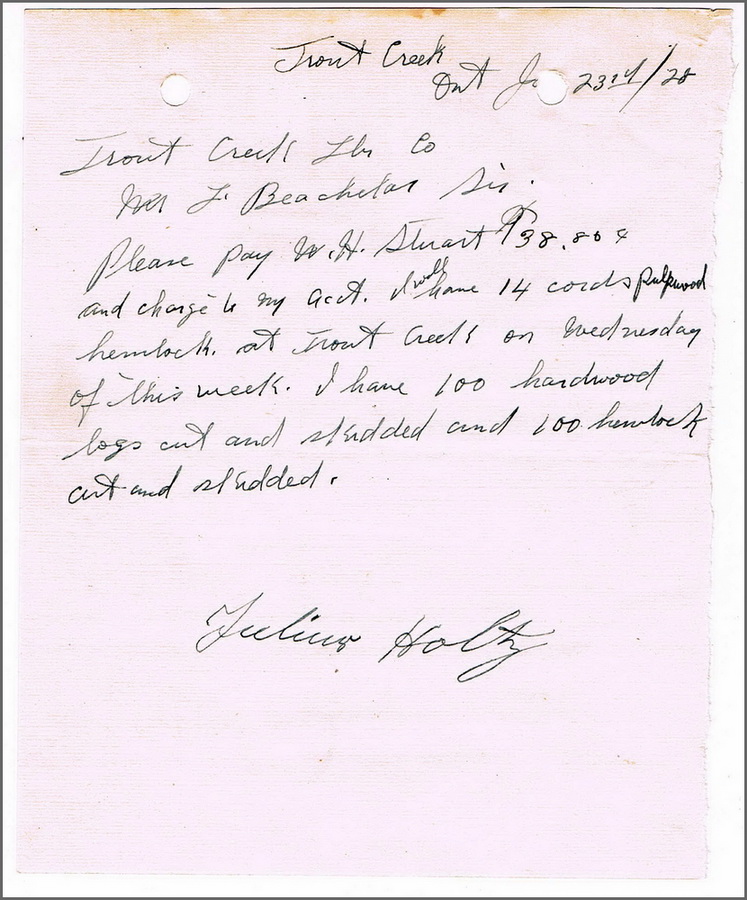 Trout Creek
Ont 23rd/28
Trout Creek Lbr Co
Mr F. Beachelar Sir.
Please pay W.H. Stuart $38.80¢
and charge to my acct. I will have 14 cords pulpwood
hemlock. at Trout Creek on Wednesday
of this week. I have 100 hardwood
logs cut and skidded and 100 hemlock
cut and skidded.
Julius Holtz